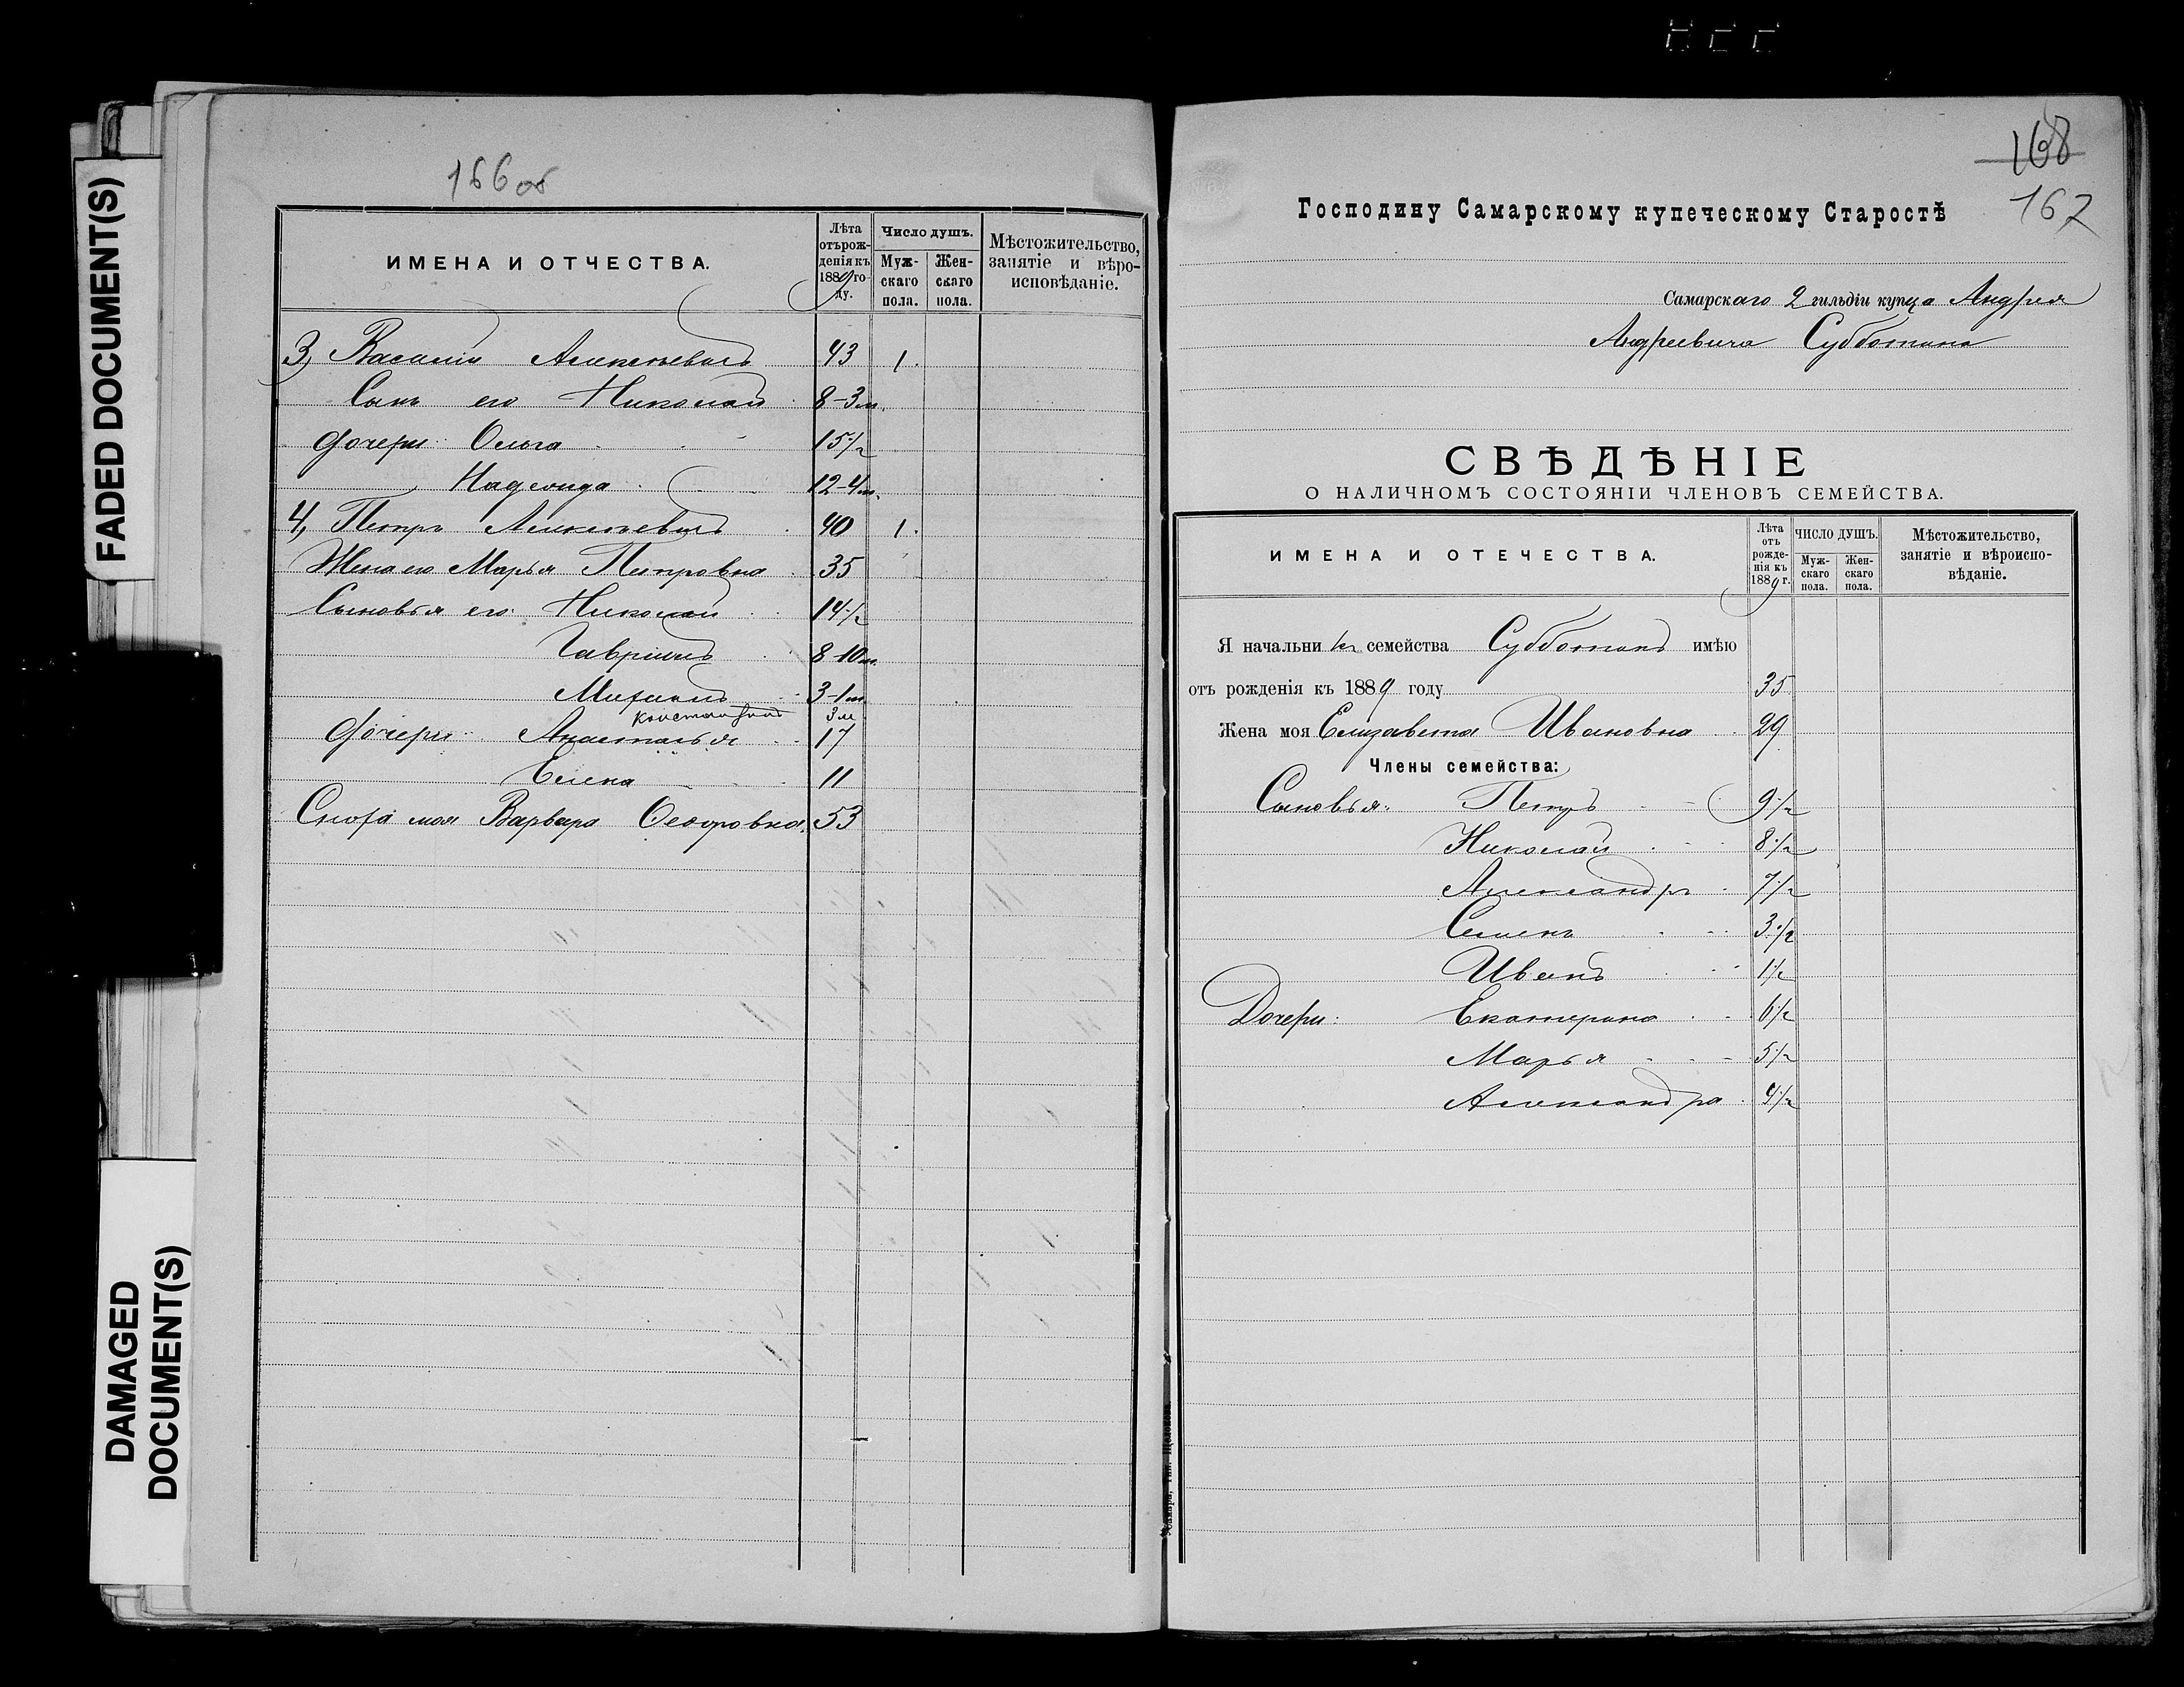 FADED DOCUMENT(S)
DAMAGED
DOCUMENT(S)
166 об
ИМЕНА И ОТЧЕСТВА.
Лѣта отъ рожденія къ 1889 году.
Число душъ.
Мужскаго пола.
Женскаго пола.
Мѣстожительство, занятіе и вѣроисповѣданіе.
3, Василій Алексѣевичъ 43 1.
Сынъ его Николай 8-3м.
Дочери: Ольга 15 1/2
Надежда 12-4м.
4, Петръ Алексѣевичъ 40 1.
Жена его Марья Петровна 35
Сыновья его: Николай 14 1/2
Гавріилъ 8-10м.
Михаилъ 3-1м.
Константинъ 3м
Дочери: Анастасья 17
Елена 11
Сноха моя Варвара Ѳеодоровна 53
168
167
Господину Самарскому купеческому Старостѣ
Самарскаго 2 гильдіи купца Андрея
Андреевича Субботина
СВѢДѢНІЕ
О НАЛИЧНОМЪ СОСТОЯНІИ ЧЛЕНОВЪ СЕМЕЙСТВА.
ИМЕНА И ОТЕЧЕСТВА.
Лѣта отъ рожденія къ 1889 г.
ЧИСЛО ДУШЪ.
Мужскаго пола.
Женскаго пола.
Мѣстожительство, занятіе и вѣроисповѣданіе.
Я начальникъ семейства Субботинъ имѣю
отъ рожденія къ 1889 году 35
Жена моя Елизавета Ивановна 29
Члены семейства:
Сыновья: Петръ 9 1/2
Николай 8 1/2
Александръ 7 1/2
Семенъ 3 1/2
Иванъ 1 1/2
Дочери: Екатерина 6 1/2
Марья 5 1/2
Александра 4 1/2
Самара, Тип. Щелокова.